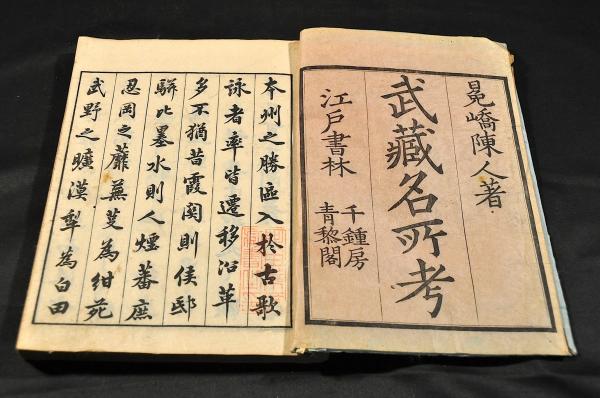 冕嶠陳人著
武藏名所考
江戸書林
千鍾房
青黎閣
本州之勝區入於古歌
詠者率皆遷移沿革
多不猶昔霞関則侯邸
駢比墨水則人煙蕃庶
忍岡之蘼蕪芟為紺苑
武野之曠漠犁為白田